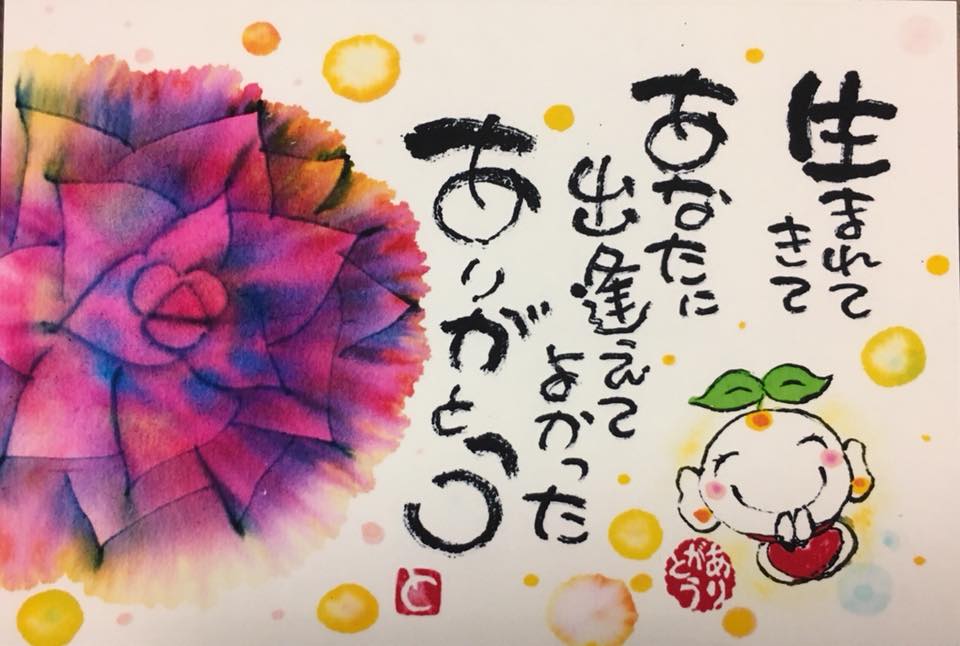 生まれて
きて
あなたに
出逢えて
よかった
ありがとう
ありがとう
と